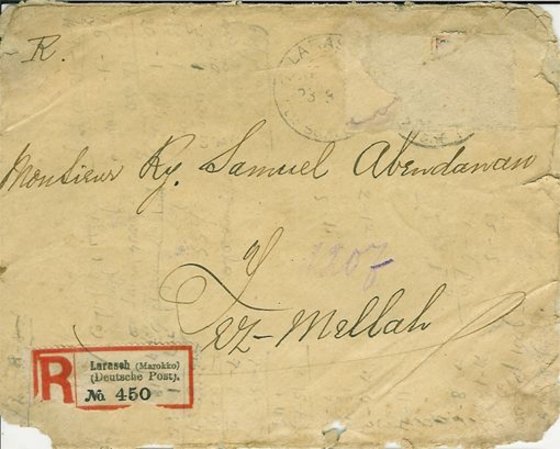 R.
LARAS
23 8
Monsieur Ry. Samuel Abendanan
1207
Fez-Mellah
R
Larasch (Marokko)
(Deutsche Post).
No. 450